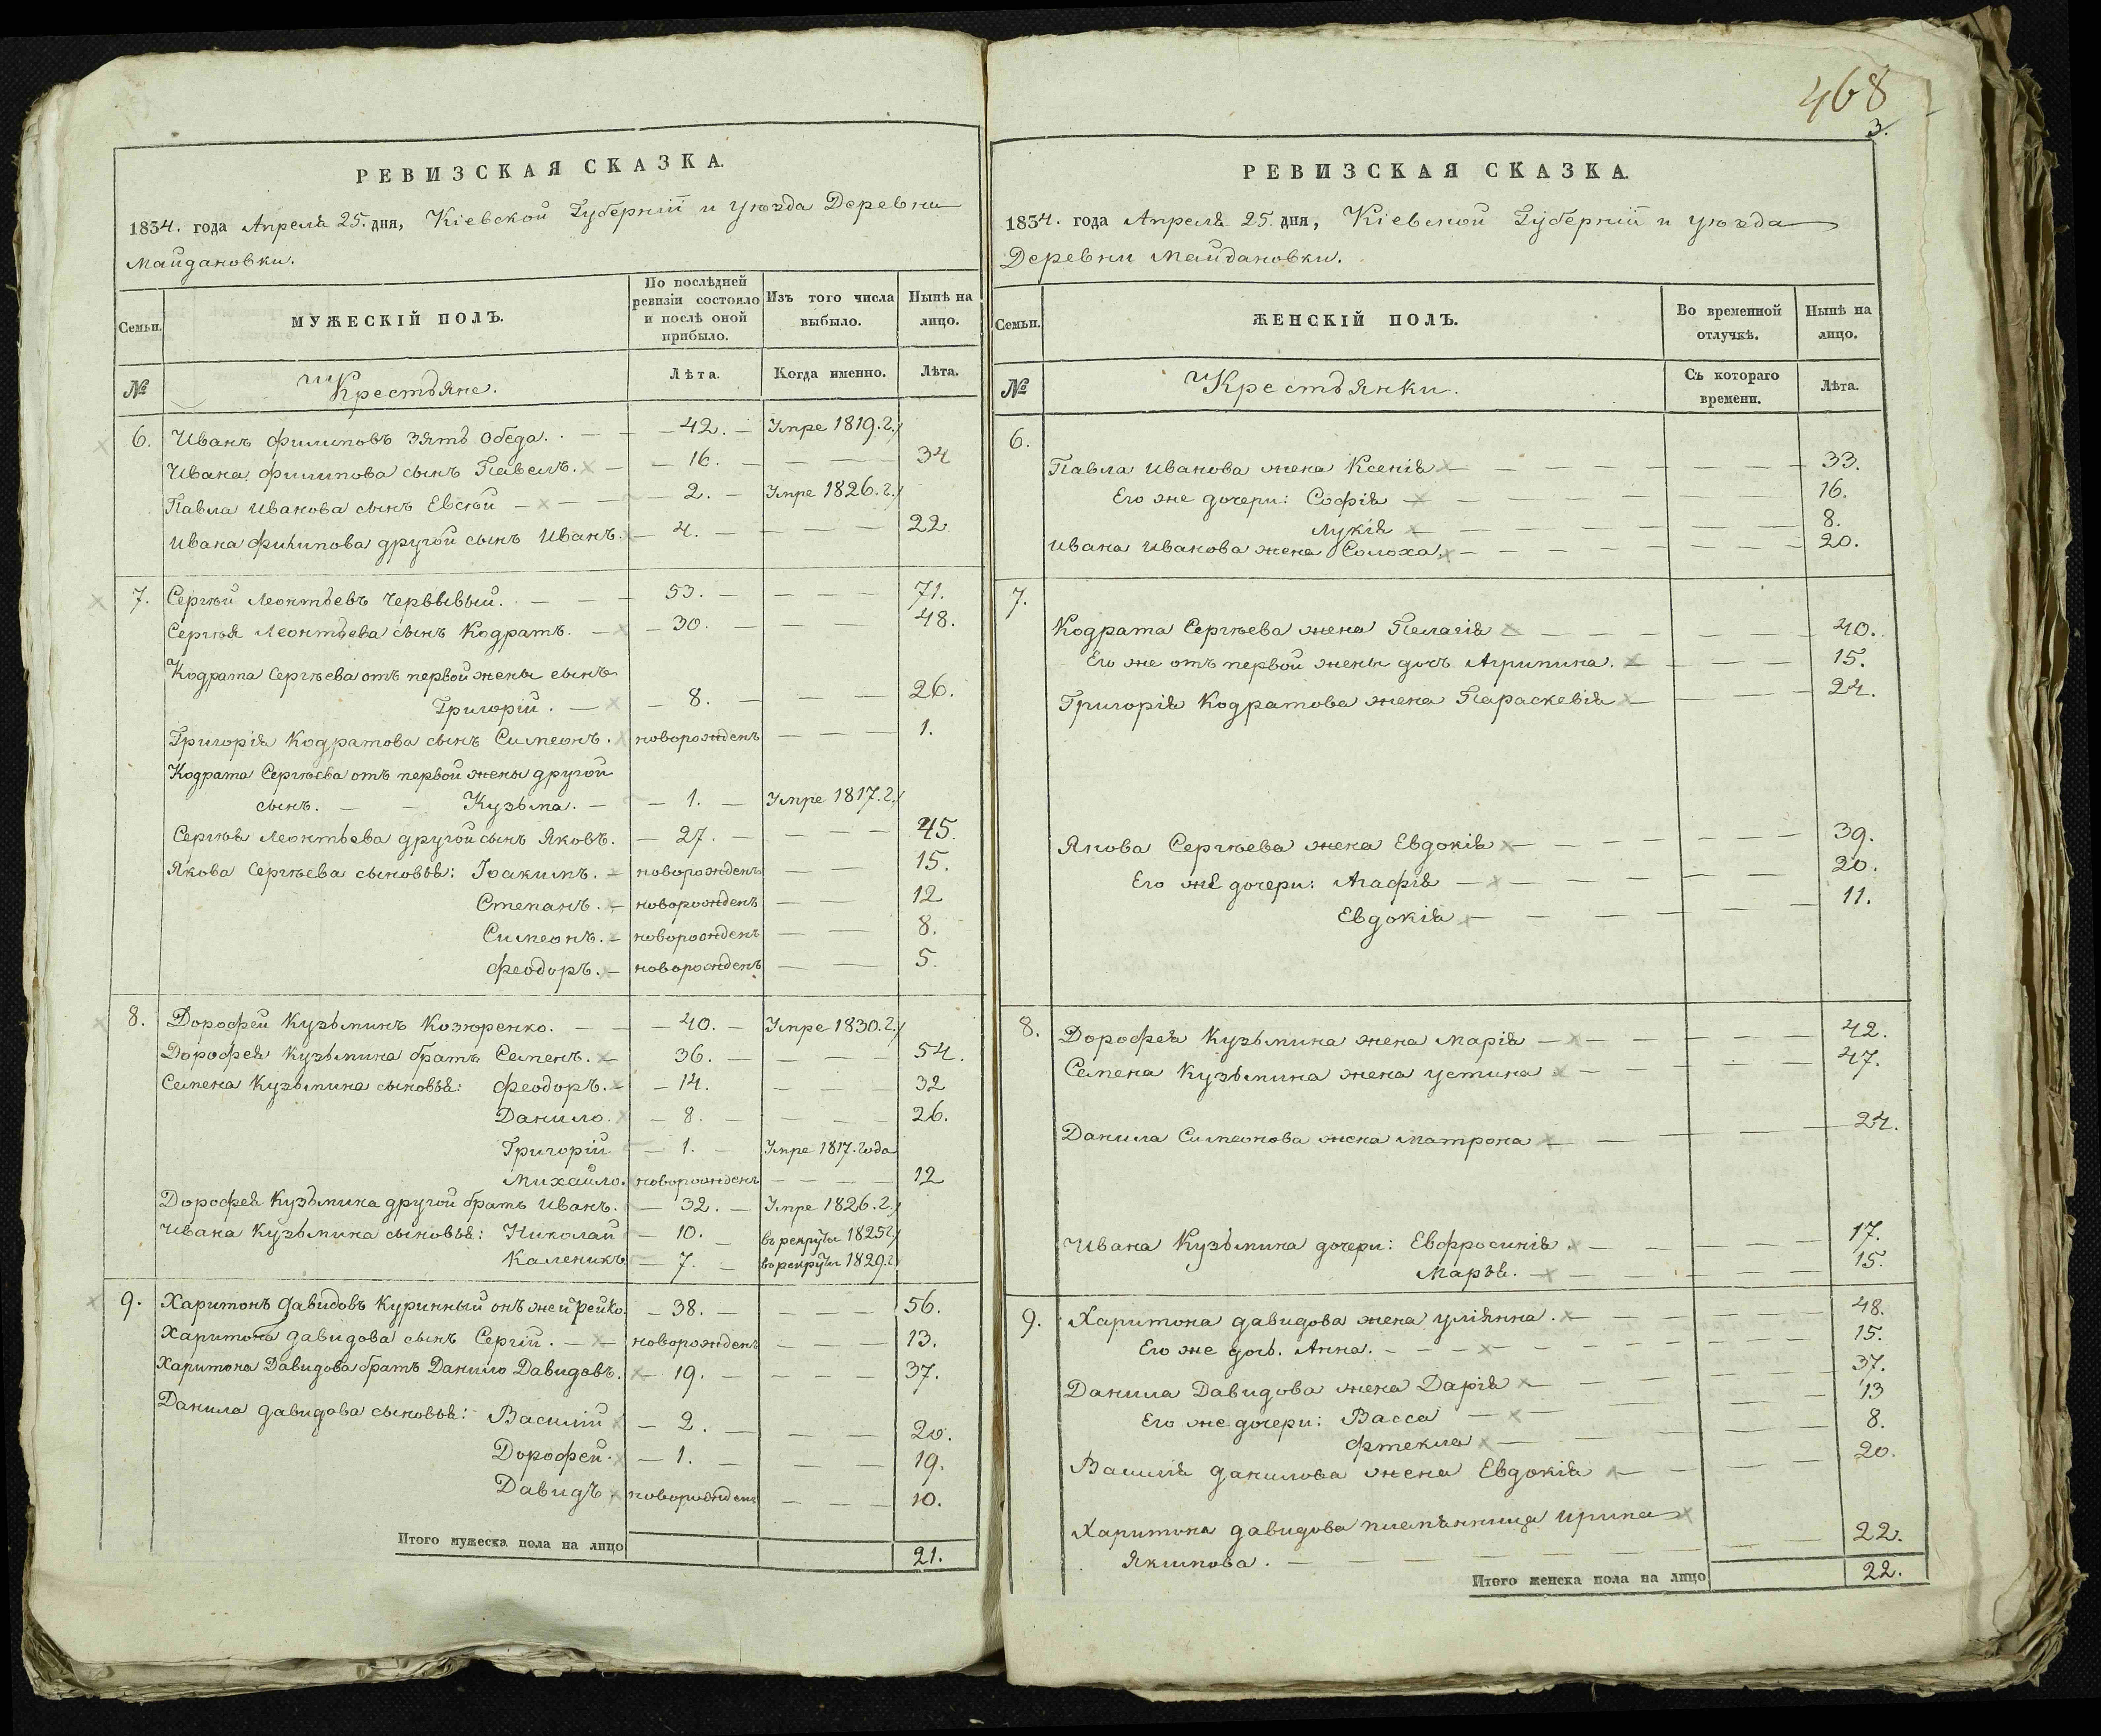 РЕВИЗСКАЯ СКАЗКА.
1834. года Апреля 25. дня, Кіевской Губерніи и уѣзда Деревни
Майдановки.
Семьи.
МУЖЕСКІЙ ПОЛЪ.
По послѣдней ревизіи состояло и послѣ оной прибыло.
Изъ того числа выбыло.
Нынѣ на лицо.
№
Крестьяне.
Лѣта.
Когда именно.
Лѣта.
6. Иванъ Филиповъ зять Обеда. 42. Умре 1819. г.
Ивана Филипова сынъ Павелъ. 16. 34
Павла Иванова сынъ Евсѣй 2. Умре 1826. г.
Ивана Филипова другой сынъ Иванъ. 4. 22.
7. Сергѣй Леонтьевъ 53. 71.
Сергѣя Леонтьева сынъ Кодратъ. 30. 48.
Кодрата Сергѣева отъ первой жены сынъ
Григорій. 8. 26.
Григорія Кодратова сынъ Симеонъ. новорожденъ 1.
Кодрата Сергѣева отъ первой жены другой
сынъ. Кузьма. 1. Умре 1817. г.
Сергѣя Леонтьева другой сынъ Яковъ. 27. 45.
Якова Сергѣева сыновья: Іоакимъ. новорожденъ 15.
Степанъ. новорожденъ 12
Симеонъ. новорожденъ 8.
Феодоръ. новорожденъ 5.
8. Дорофей Кузьминъ Козюренко. 40. Умре 1830. г.
Дорофея Кузьмина братъ Семенъ. 36. 54.
Семена Кузьмина сыновья: Феодоръ. 14. 32
Данило. 8. 26.
Григорій 1. Умре 1817. года
Михайло. новорожденъ 12
Дорофея Кузьмина другой братъ Иванъ. 32. Умре 1826. г.
Ивана Кузьмина сыновья: Николай 10. въ рекруты 1825 г.
Каленикъ 7. въ рекруты 1829. г.
9. Харитонъ Давидовъ Куринный онъ же 38. 56.
Харитона Давидова сынъ Сергій. новорожденъ 13.
Харитона Давидова братъ Данило Давидовъ. 19. 37.
Данила Давидова сыновья: Василий 2. 20.
Дорофей. 1. 19.
Давидъ. новорожденъ 10.
Итого мужеска пола на лицо 21.
468
3.
РЕВИЗСКАЯ СКАЗКА.
1834. года Апреля 25. дня, Кіевской Губерніи и уѣзда
Деревни Майдановки.
Семьи.
ЖЕНСКІЙ ПОЛЪ.
Во временной отлучкѣ.
Нынѣ на лицо.
№
Крестьянки.
Съ котораго времени.
Лѣта.
6.
Павла Иванова жена Ксенія 33.
Его же дочери: Софія 16.
Лукія 8.
Ивана Иванова жена Солоха 20.
7.
Кодрата Сергѣева жена Пелагія 40.
Его же отъ первой жены дочь Агрипина. 15.
Григорія Кодратова жена Параскевія 24.
Якова Сергѣева жена Евдокія 39.
Его же дочери: Агафія 20.
Евдокія 11.
8. Дорофея Кузьмина жена Марія 42.
Семена Кузьмина жена Устина 47.
Данила Симеонова жена Матрона 24.
Ивана Кузьмина дочери: Евфросинія 17.
Марья. 15.
9. Харитона Давидова жена Уліянна. 48.
Его же дочь. Анна. 15.
Данила Давидова жена Дарія 37.
Его же дочери: Васса 13
Фтекла 8.
Василія Данилова жена Евдокія 20.
Харитона Давидова племѣнница Ирина
Якимова. 22.
Итого женска пола на лицо 22.